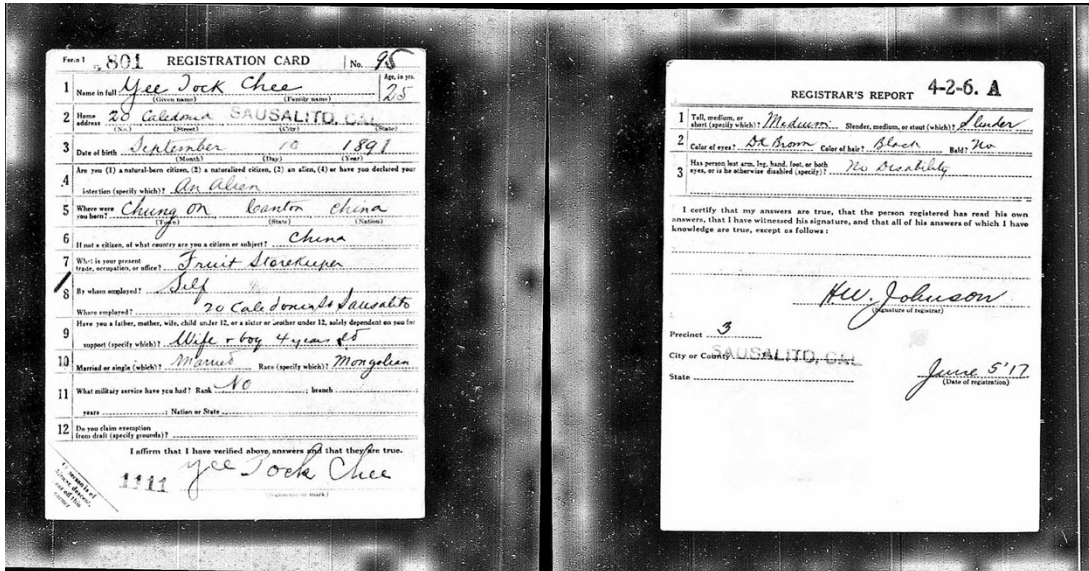 Form 1 801 REGISTRATION CARD No. 95
1 Name in full Yee Tock Chee Age, in yrs. 25
(Given name) (Family name)
2 Home address 20 Caledonia SAUSALITO, CAL
(No.) (Street) (City) (State)
3 Date of birth September 10 1891
(Month) (Day) (Year)
4 Are you (1) a natural-born citizen, (2) a naturalized citizen, (3) an alien, (4) or have you declared your
intention (specify which)? An Alien
5 Where were you born? Chung On Canton China
(Town) (State) (Nation)
6 If not a citizen, of what country are you a citizen or subject? China
7 What is your present trade, occupation, or office? Fruit Storekeeper
8 By whom employed? Self
Where employed? 20 Caledonia St Sausalito
9 Have you a father, mother, wife, child under 12, or a sister or brother under 12, solely dependent on you for
support (specify which)? Wife + boy 4 years old
10 Married or single (which)? Married Race (specify which)? Mongolian
11 What military service have you had? Rank No ; branch
years ; Nation or State
12 Do you claim exemption
from draft (specify grounds)?
I affirm that I have verified above answers and that they are true.
1111 Yee Tock Chee
(Signature or mark)
If person is of
African descent,
tear off this
corner
REGISTRAR'S REPORT 4-2-6. A
1 Tall, medium, or short (specify which)? Medium Slender, medium, or stout (which)? Slender
2 Color of eyes? Dk Brown Color of hair? Black Bald? No
3 Has person lost arm, leg, hand, foot, or both
eyes, or is he otherwise disabled (specify)? No Disability
I certify that my answers are true, that the person registered has read his own
answers, that I have witnessed his signature, and that all of his answers of which I have
knowledge are true, except as follows:
H.W. Johnson
(Signature of registrar)
Precinct 3
City or County SAUSALITO, CAL
State
June 5 '17
(Date of registration)